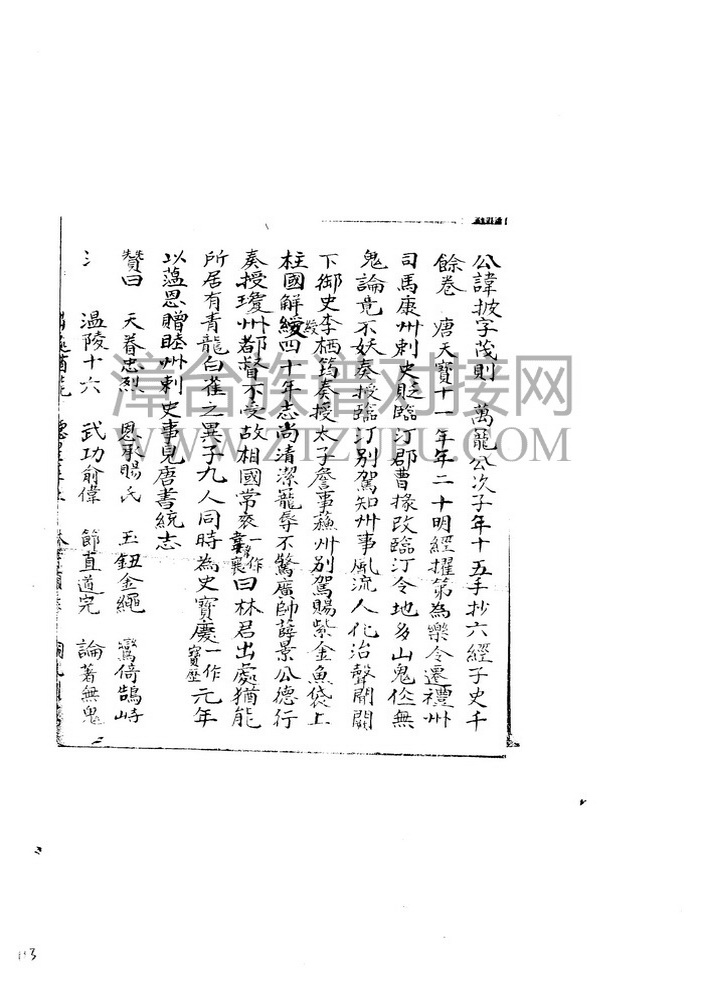 公諱披字茂則萬寵公次子年十五手抄六經子史千
餘卷 唐天寶十一年年二十明經擢第為樂令遷禮州
司馬康州刺史貶臨汀郡曹掾改臨汀令地多山鬼作無
鬼論竟不妖奏授臨汀別駕知州事風流人化治聲聞闕
下御史李栖筠奏授太子詹事蘓州別駕賜紫金魚袋上
柱國解綬綬四十年志尚清潔寵辱不驚廣帥薛景公德行
奏授瓊州都督不受故相國常袞一作韋襄曰林君出處猶能
所居有青龍白雀之異子九人同時為史寶慶一作寶歷元年
以蕰恩贈睦州刺史事見唐書統志
贊曰 天眷忠烈 恩承賜氏 玉鈕金繩 鸞倚鵠峙
溫陵十六 武功俞偉 節直道完 論著無鬼
漳台族谱对接网
WWW.ZTZUPU.COM
113